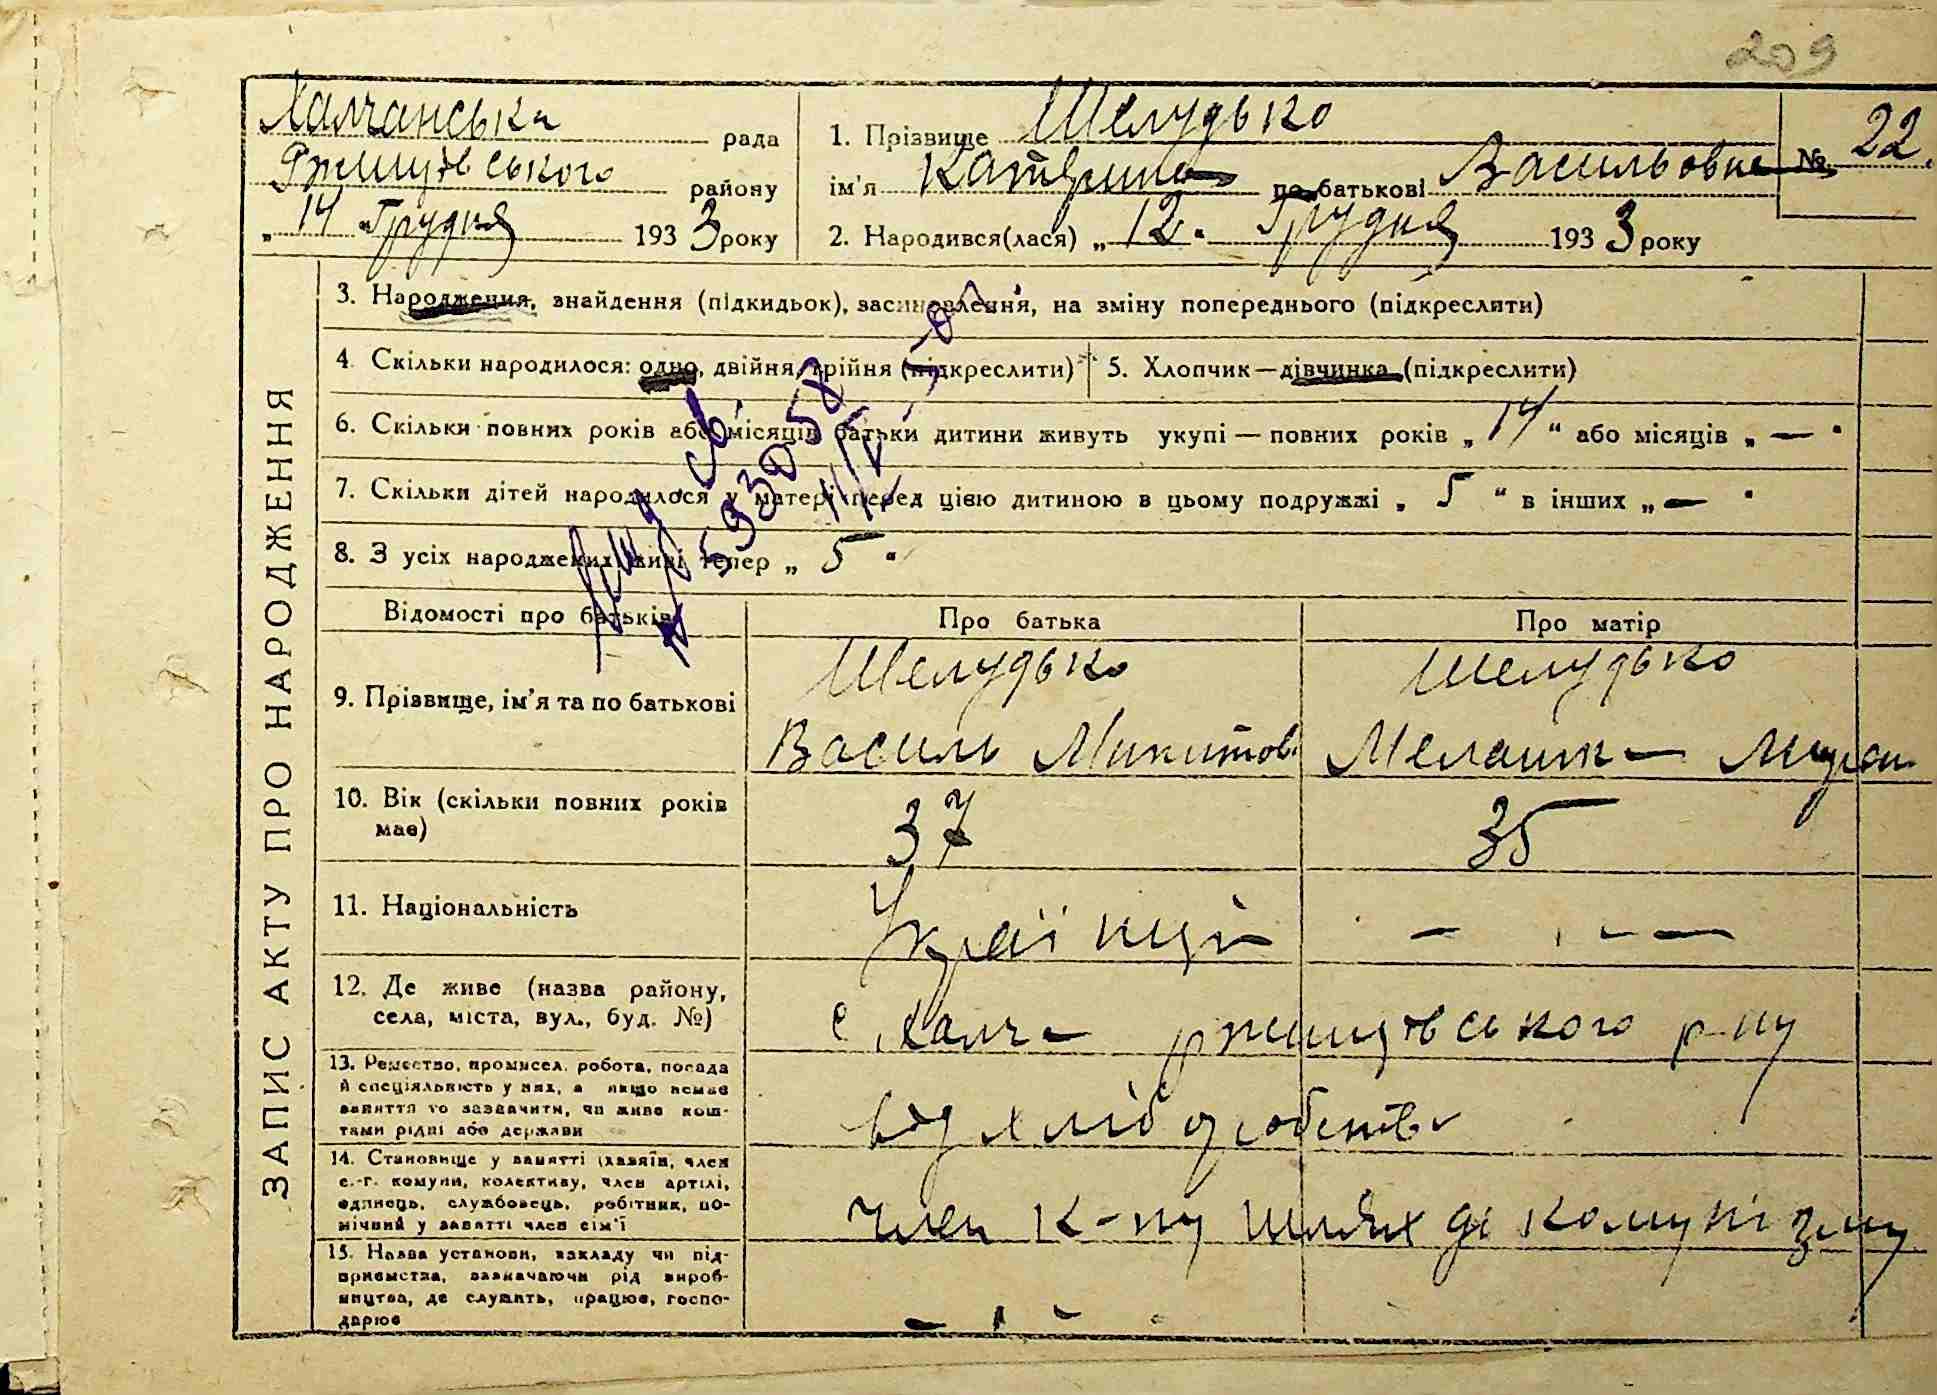 209
Халчанська рада
Ржищівського району
„ 14 " Грудня 1933 року
1. Прізвище Шелудько
ім'я Катерина по батькові Васильовна № 22.
2. Народився(лася) „ 12 " Грудня 1933 року
ЗАПИС АКТУ ПРО НАРОДЖЕННЯ
3. Народження, знайдення (підкидьок), засиновлення, на зміну попереднього (підкреслити)
4. Скільки народилося: одно, двійня, трійня (підкреслити) 5. Хлопчик — дівчинка (підкреслити)
6. Скільки повних років або місяців батьки дитини живуть укупі — повних років „ 14 " або місяців „ — "
7. Скільки дітей народилося у матері перед цією дитиною в цьому подружжі „ 5 " в інших „ — "
8. З усіх народжених живі тепер „ 5 "
Відомості про батьків Про батька Про матір
9. Прізвище, ім'я та по батькові Шелудько Шелудько
Василь Микитов. Мелашка
10. Вік (скільки повних років має) 37 35
11. Національність Українці — „ —
12. Де живе (назва району, села, міста, вул., буд. №) с Халча ржищівського р-ну
13. Ремество, промисел, робота, посада
й спеціяльність у них, а якщо немає
заняття то зазначити, чи живе кош-
тами рідні або держави від хліборобства
14. Становище у занятті (хазяїн, член
с.-г. комуни, колективу, член артілі,
одинець, службовець, робітник, по-
мічний у занятті член сім'ї член к-пу шлях до комунізму
15. Назва установи, закладу чи під-
приємства, зазначаючи рід вироб-
ництва, де служить, працює, госпо-
дарює — „ —